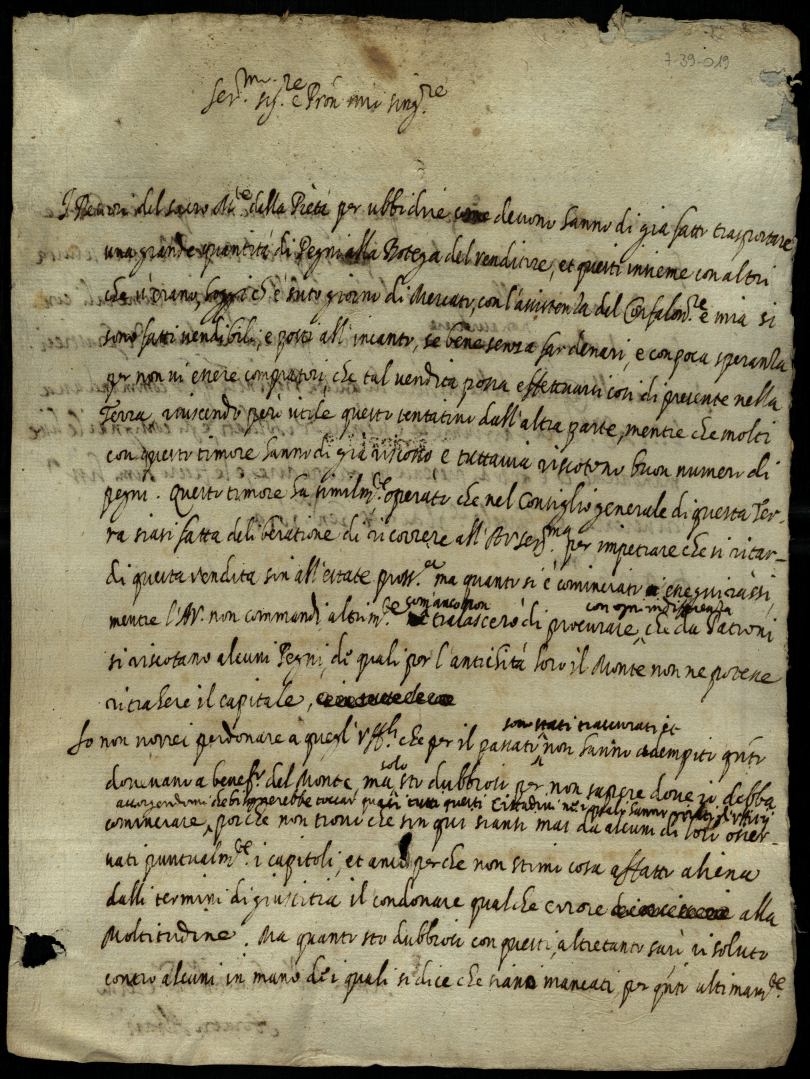 7-39-019
Ser.mo Sig.re e Pron mio sing.re
I Rettori del sacro M.te della Pietà per ubbidire come devono hanno di già fatto trasportare
una grande quantità di Pegni alla Botega del venditore, et questi insieme con altri
che v'erano, hoggi ch'è stato giorno di Mercato, con l'assistenza del Confalon.re e mia si
sono fatti vendibili, e posti all'incanto, se bene senza far denari, e con poca speranza
per non vi essere compratori, che tal vendita possa effettuarsi così di presente nella
Terra, riuscendo però utile questo tentativo dall'altra parte, mentre che molti
con questo timore hanno di già riscosso e tuttavia riscoteno buon numero di
pegni. Questo timore ha similm.te operato che nel Consiglio generale di questa Ter-
ra siasi fatta deliberatione di ricorrere all'Av Ser.ma per impetrare che si ritar-
di questa vendita sin all'estate pross.a ma quanto si è cominciato esseguirassi,
mentre l'AV. non commandi altrim.te com'anco non tralascerò di procurare, con ogni indifferenza che da Patroni
si riscotano alcuni Pegni, de quali per l'antichità loro il Monte non ne potesse
ritrahere il capitale,
Io non vorrei perdonare a quegl'Uff.li che per il passato son stati trascurati et non hanno adempito q.to
dovevano a benef.o del Monte, ma solo sto dubbioso per non sapere dove si debba
cominciare, accorgendomi che bisognerebbe toccar quasi tutti questi Cittadini ne i quali sanno
poiche non trovo che sin qui siansi mai da alcuni di loro osser-
vati puntualm.te i capitoli, et anco perche non stimo cosa affatto aliena
dalli termini di giustitia il condonare qualche errore alla
Moltitudine. Ma quanto sto dubbioso con questi, altretanto sarò risoluto
contro alcuni in mano de i quali si dice che siano mancati per q.to ultimam.te